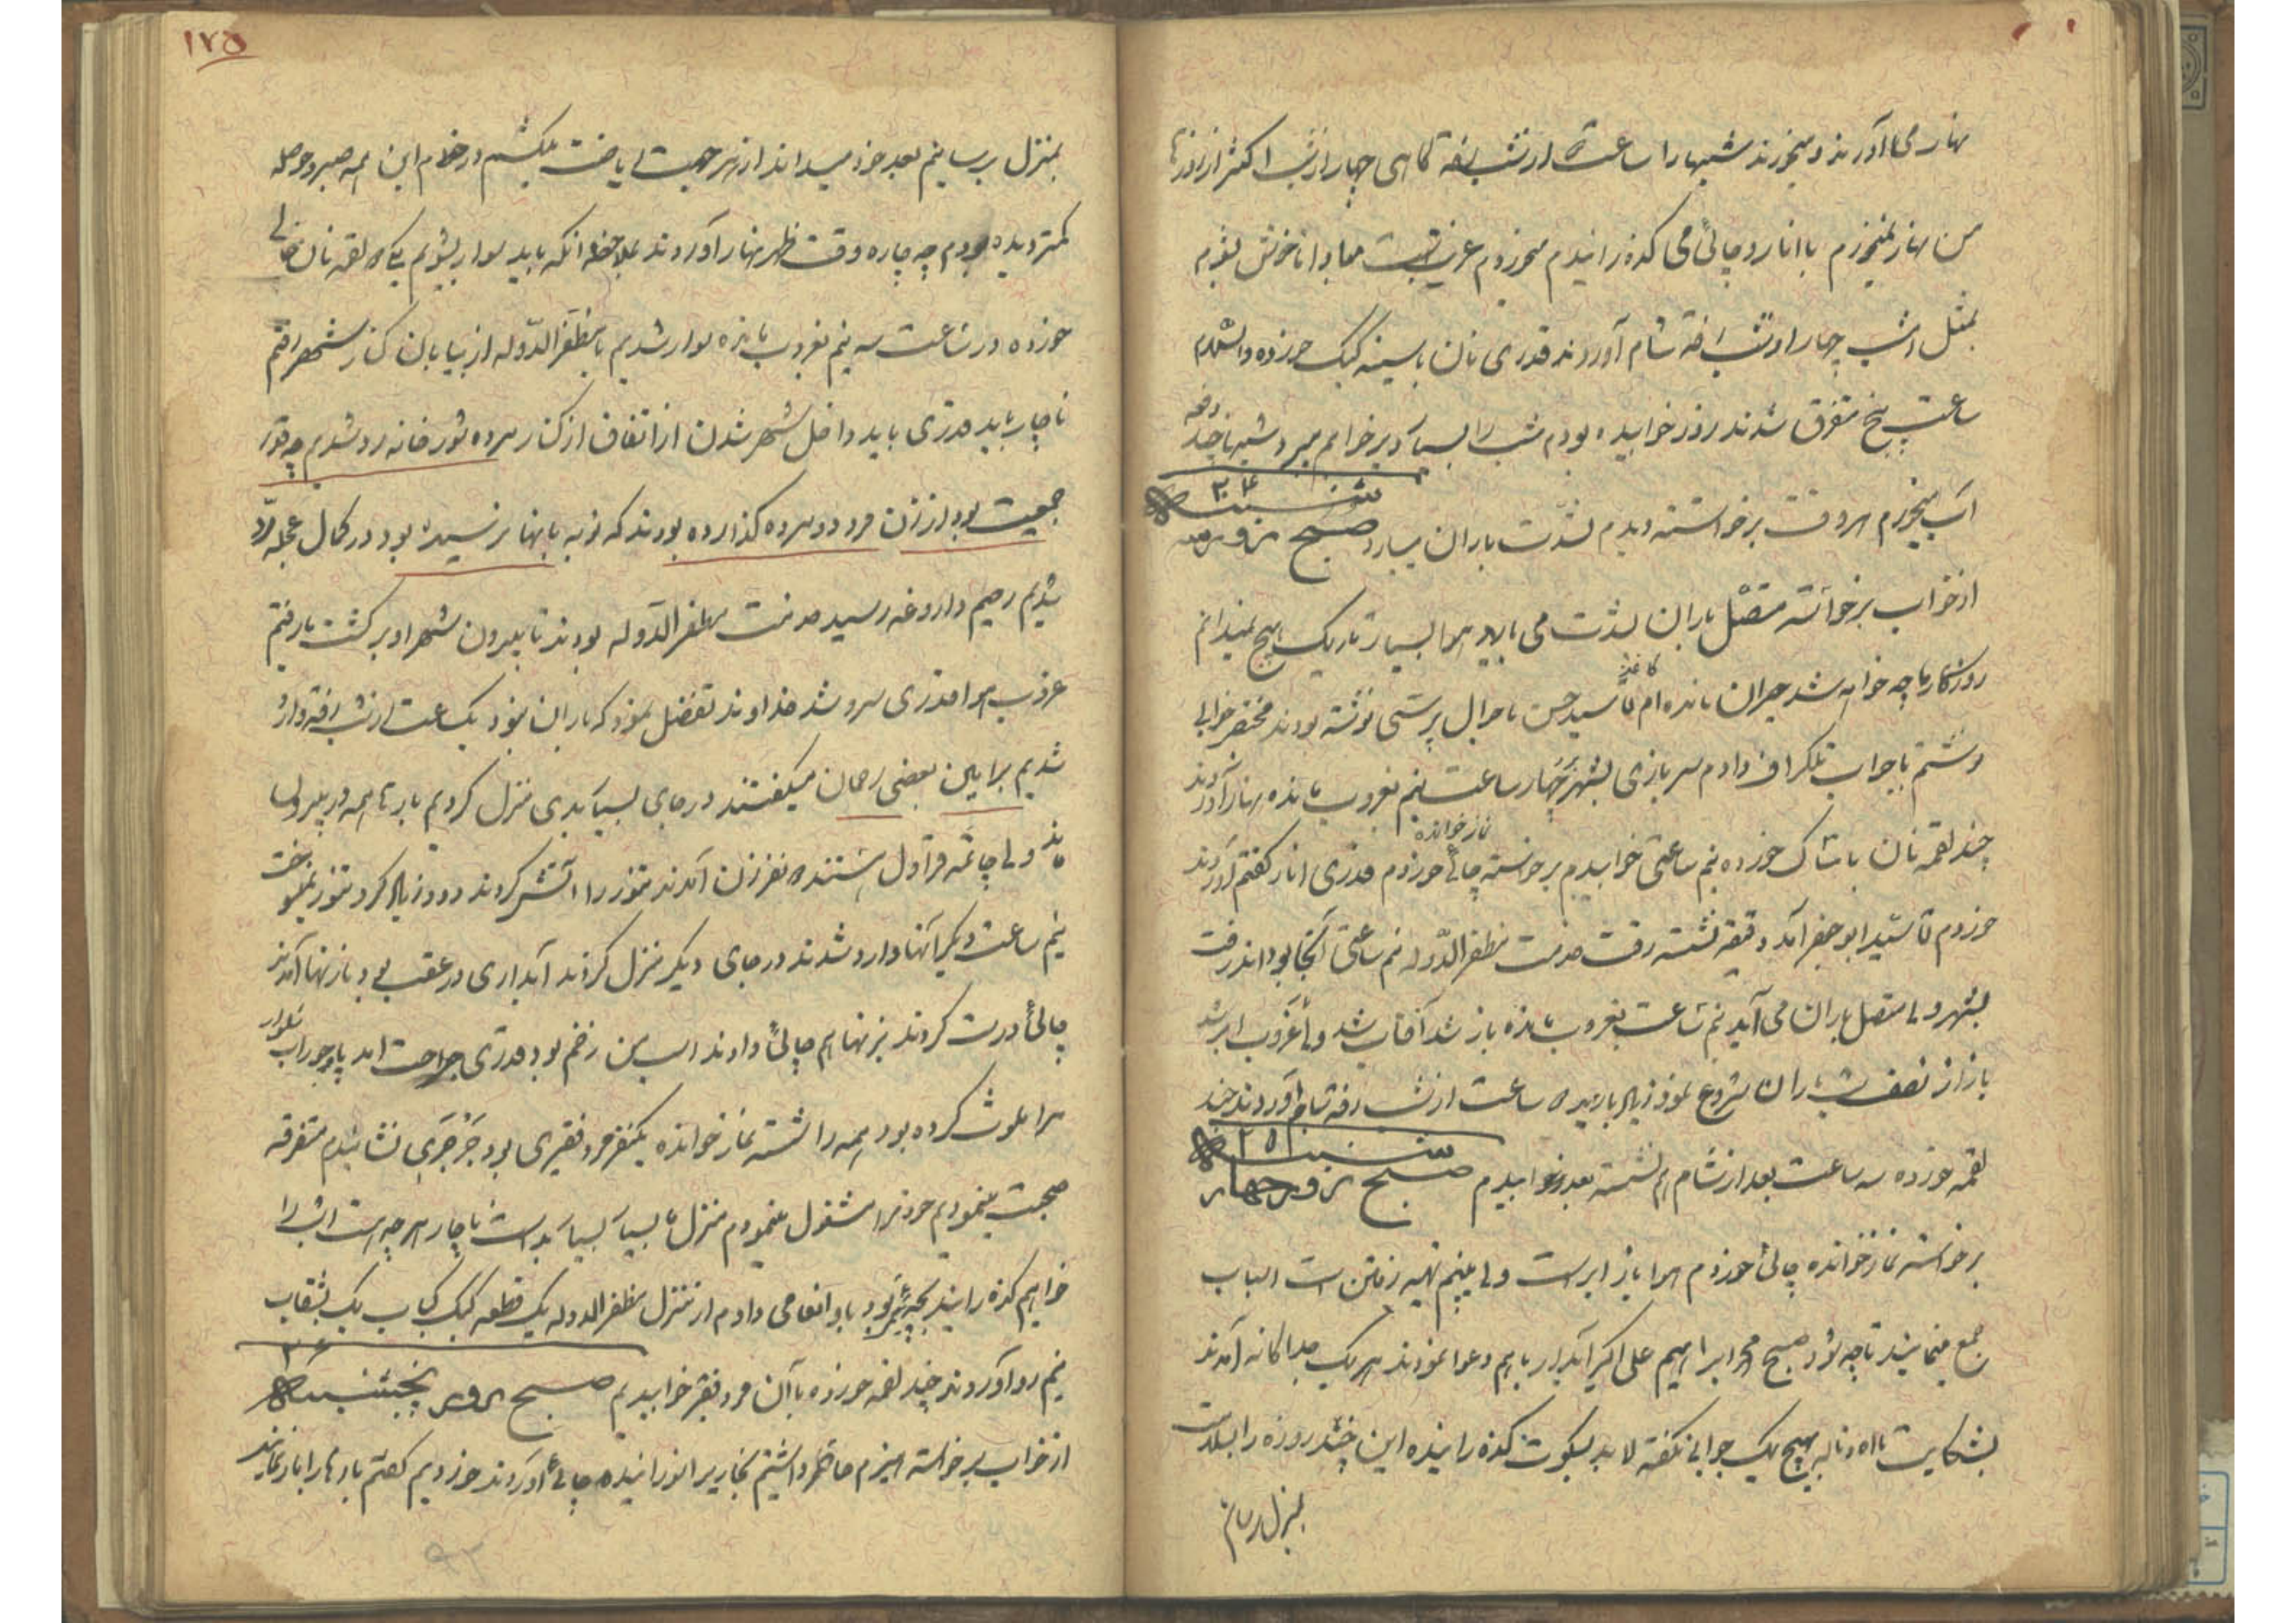 نهار می آورند میخورند شبها را ساعت از شب رفته گاهی چهار از شب اکثر از روزها
من نهار نمیخورم با انار و چائی می گذرانیدم میخوردم غریب است مبادا ناخوش بشوم
بمثل دیشب چهار از شب رفته شام آوردند قدری نان با سینه کبک خورده داشتم
ساعت پنج متفرق شدند روز خوابیده بودم شب را بسیار دیر خوابم میبرد شبها چند دفعه
آب میخورم هر وقت برخواسته دیدم بشدّت باران میبارد صبح روز سه شنبه ۲۴
از خواب برخواسته متصّل باران بشدت می بارد هوا بسیار تاریک هیچ نمیدانم
روزگار ما چه خواهد شد حیران مانده ام کاغذ آقا سید حسن با حوال پرستی نوشته بودند مختصر جوابی
نوشتم با جواب تلگراف دادم سربازی بشهر ببرد چهار ساعت نیم بغروب مانده نهار آوردند
چند لقمه نان با خورده نیم ساعتی خوابیدم برخواسته نماز خوانده چائی خوردم قدری انار گفتم آوردند
خوردم آقا سیّد ابو جعفر آمد دقیقه نشسته رفت خدمت مظفر الدّوله نیم ساعتی آنجا بود اند رفت
بشهر ولی متصل باران می آید نیم ساعت بغروب مانده باز شد آفتاب شد ولی غروب ابر شد
باز از نصف شب باران شروع نمود زیاد بارید ساعت از شب رفته شام آوردند چند
لقمه خورده سه ساعت بعد از شام هم نشسته بعد خوابیدم صبح روز چهار شنبه ۲۵
برخواسته نماز خوانده چائی خوردم هوا باز ابر است ولی میبینم تهیه رفتن است اسباب
جمع مینمایند تا چه شود صبح محمد ابراهیم علی اکبر آبدار با هم دعوا نمودند هر یک جداگانه آمدند
بشکایت با اه و ناله هیچ یک جوابی نگفته لابد بسکوت گذرانیده این چند روزه را بسلامت
بمنزل برسانم
۱۷۵
بمنزل برسانیم بعد خود میدانند از هر جهت ریاضت میکشم در خودم این همه صبر و حوصله
کمتر دیده بودم چه چاره وقت ظهر نهار آوردند بملاحظه آنکه باید سوار بشویم یک لقمه نان خالی
خورده در ساعت سه نیم بغروب مانده سوار شدیم با مظفر الدّوله از بیابان کنار شهر رفتم
ناچار باید قدری باید داخل شهر شدن از اتفاق از کنار مرده شور خانه رد شدیم چه قدر
جمعیت بود از زن مرد دو مرده گذارده بودند که نوبه بآنها نرسیده بود در کمال عجله رد
شدیم رحیم داروغه رسید خدمت مظفر الدّوله بودند تا بیرون شهر او برگشت ما رفتم
غروب هوا قدری سرد شد خداوند تفضل نمود که باران نبود یک ساعت از شب رفته وارد
شدیم برایلن بعضی رحمان میگفتند در جای بسیار بدی منزل کردیم بارها همه در بیرون
ماند ولی چاتمه قراول هستند نفر زن آمدند تنور را آتش کردند دود زیاد کرد تنور نمیسوخت
نیم ساعت دیگر آنها وارد شدند در جای دیگر منزل کردند آبداری در عقب بود باز تنها آمدند
چائی درست کردند بزنها هم چائی دادند اسب من زخم بود قدری جراحت آمد پا و جوراب شلوار
مرا ملوث کرده بود همه را شسته نماز خوانده یکنفر مرد فقیری بود نشانیدم متفرقه
صحبت مینمودیم خود را مشغول مینمودم منزل ما بسیار بسیار بد است ناچار هر چه هست امشب را
خواهیم گذرانید بچه بود باو انعامی دادم از منزل مظفر الدوله یک قطعه کبک کباب یک بشقاب
نیمرو آوردند چند لقمه خورده با آن مرد فقیر خوابیدیم صبح روز پنجشنبه ۲۶
از خواب برخواسته هیزم حاضر داشتیم بخاری را افروزانیده چائی آوردند خوردیم گفتم بارها را بار نمایند
۹۲